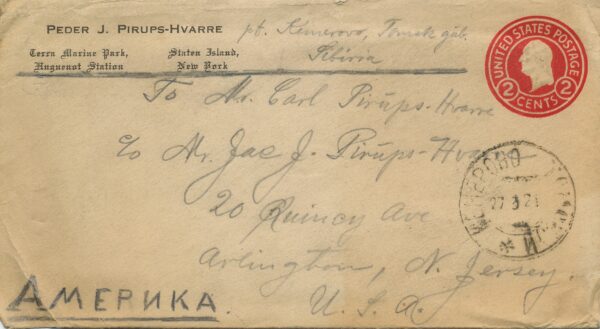 PEDER J. PIRUPS-HVARRE
Terra Marine Park,
Huguenot Station
Staten Island,
New York
pt. Kemerovo, Tomsk gub.
Sibiria
UNITED STATES POSTAGE
2 CENTS 2
To Mr. Carl Pirups-Hvarre
c/o Mr. Jac J. Pirups-Hvarre
20 Quincy Ave
Arlington, N. Jersey.
U. S. A.
КЕМЕРОВО
27 3 2
И
АМЕРИКА.